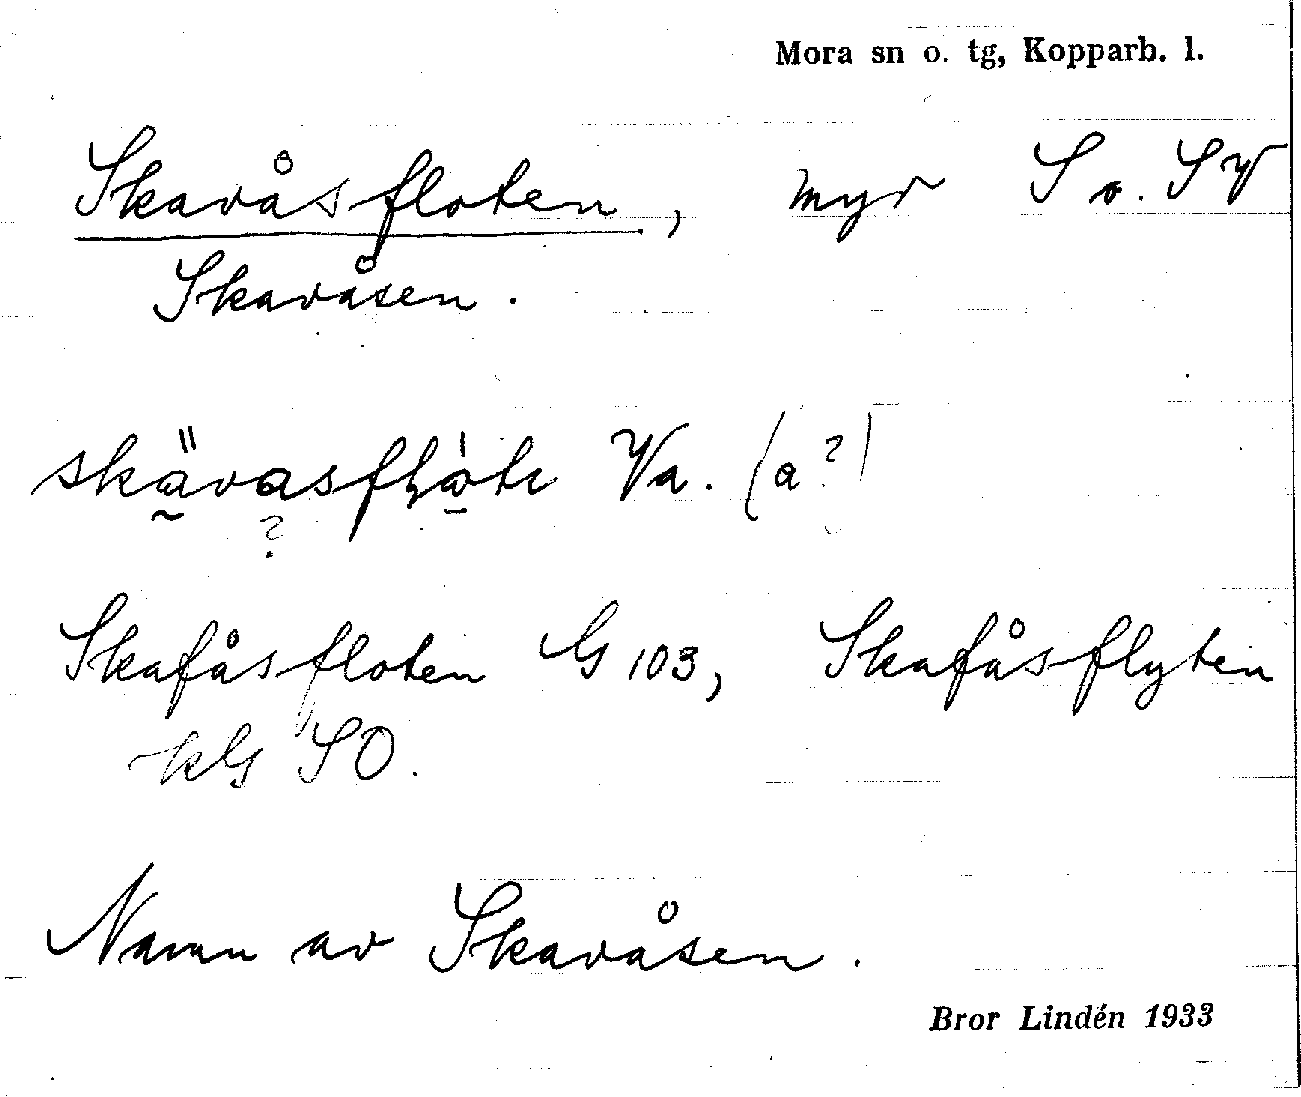 Mora sn o. tg, Kopparb. l.
Skavåsfloten, myr S o. SV
Skavåsen.
Va. (a?)
Skafåsfloten G 103, Skafåsflyten
klG SO.
Namn av Skavåsen.
Bror Lindén 1933